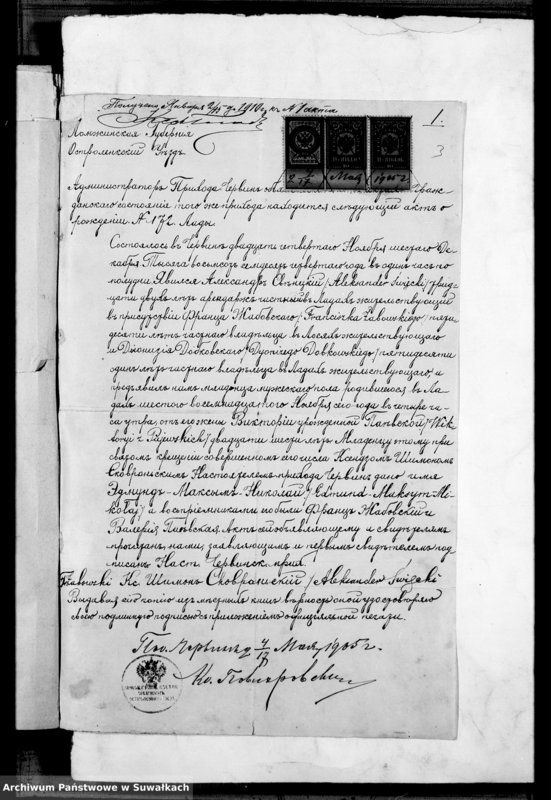 Получено Января 2/15 д. 1910 г. къ № 1 акта
1.
3
Ломжинская Губернія
Остроленскій Уѣздъ
2 4/17 Мая 1905 г
Администраторъ Прихода Червинъ
данскаго состоянія того же прихода находится слѣдующій актъ о
рожденіи № 172. Лады
Состоялось въ Червинѣ двадцати четвертаго Ноября шестаго Де-
кабря Тысяча восемьсотъ семьдесятъ четвертаго года въ одинъ часъ по
полудни. Явился Александръ Свѣнцкій /Aleksander Święcki/ трид-
цати двухъ лѣтъ въ Ладахъ жительствующій
въ присутствіи Франца Жабовскаго /Franciszka Żabowskiego/ пяти-
десяти лѣтъ частнаго владѣльца въ жительствующаго
и Діонизія Добковскаго /Dyonizego Dobkowskiego/ пятидесяти
одинъ лѣтъ частнаго владѣльца въ Ладахъ жительствующаго, и
предъявилъ намъ младенца мужескаго пола родившагося въ Ла-
дахъ шестого восемнадцатого Ноября сего года въ четыре ча-
са утра, отъ его жены Викторіи урожденной Паевской /Wik
toryi z Pajewskich/ двадцати шести лѣтъ. Младенцу этому при
святомъ крещеніи совершенномъ сего числа Ксендзомъ Шимономъ
Скавронскимъ Настоятелемъ прихода Червинъ дано имя
Эдмундъ-Максымъ-Николай /Edmund-Maksym-Mi-
kołaj/ и воспріемниками его были Францъ Жабовскій и
Валерія Паевская. Актъ сей объявляющему и свидѣтелямъ
прочитанъ, нами, и первымъ свидѣтелемъ под
писанъ Наст. Червинск. прих.
FŻabowski Кс. Шимонъ Скавронскій /Aleksander Święcki
Выдавая сію копію изъ книгъ вѣрность оной удостовѣряю
своею подписью съ приложеніемъ оффиціальной печати.
Пос. Червинъ 4/17 Мая 1905 г.
Кс.
Archiwum Państwowe w Suwałkach